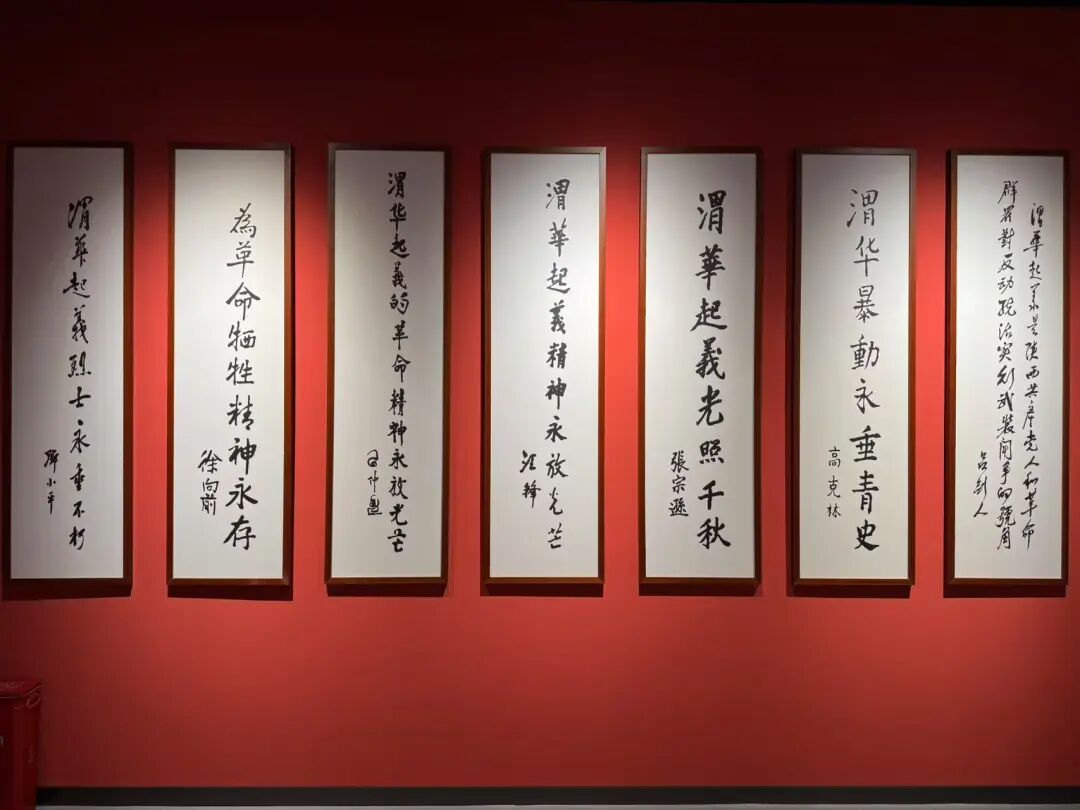 渭華起義烈士永垂不朽
鄧小平
為革命牺牲精神永存
徐向前
渭华起義的革命精神永放光芒
习仲勋
渭華起義精神永放光芒
汪锋
渭華起義光照千秋
張宗遜
渭华暴動永垂青史
高克林
渭華起义是陕西共产党人和革命
群众對反动统治实行武装鬥争的號角
吕剑人